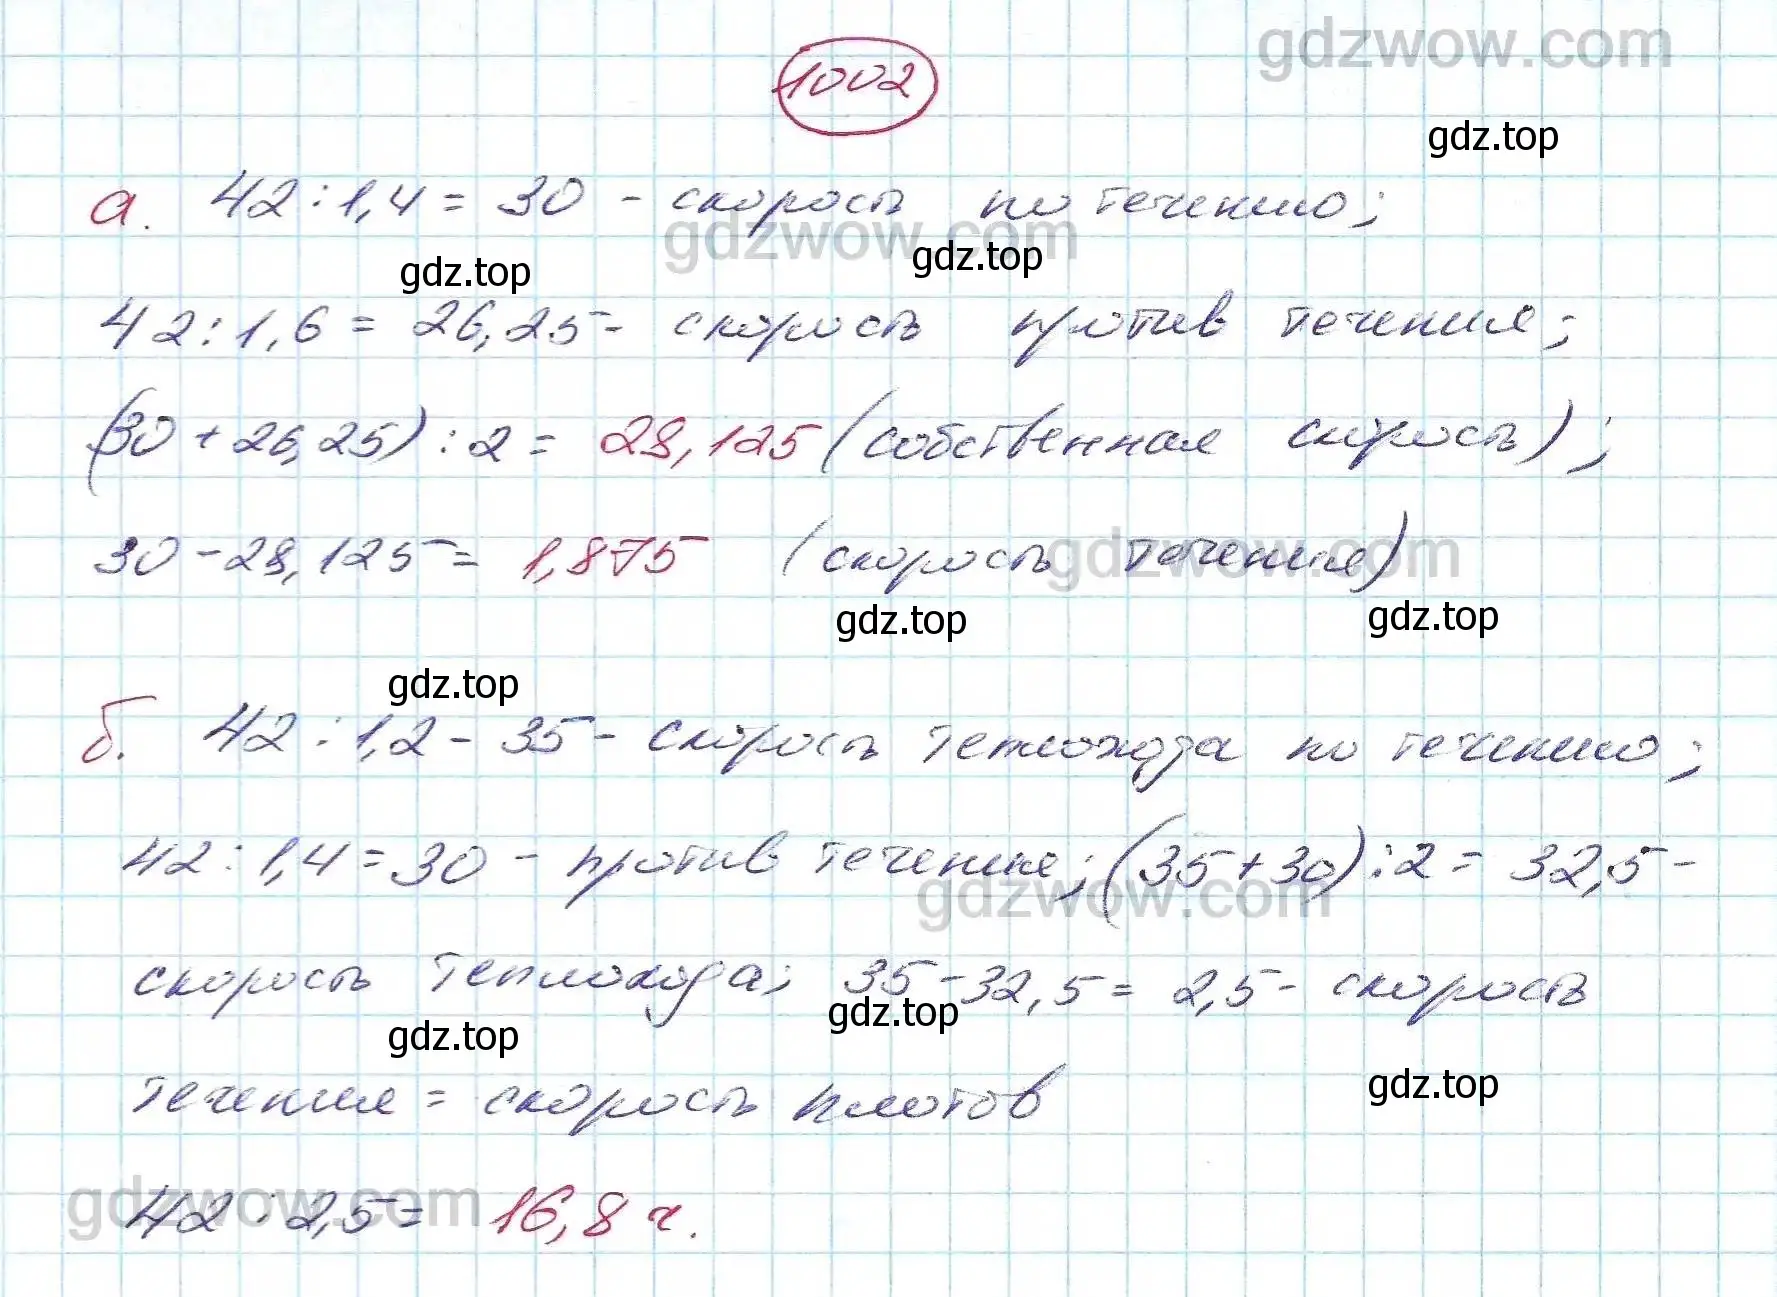 gdzwow.com
1002
gdz.top
а. 42 : 1,4 = 30 - скорость по течению;
gdzwow.com
gdz.top gdz.top
42 : 1,6 = 26,25 - скорость против течения;
(30 + 26,25) : 2 = 28,125 (собственная скорость);
30 - 28,125 = 1,875 (скорость течения)
gdzwow.com
gdz.top gdz.top
gdz.top
б. 42 : 1,2 - 35 - скорость теплохода по течению;
42 : 1,4 = 30 - против течения; (35 + 30) : 2 = 32,5 -
gdzwow.com
скорость теплохода; 35 - 32,5 = 2,5 - скорость
gdz.top gdz.top
течения = скорость плотов
gdz.top
gdzwow.com
42 : 2,5 = 16,8 ч.